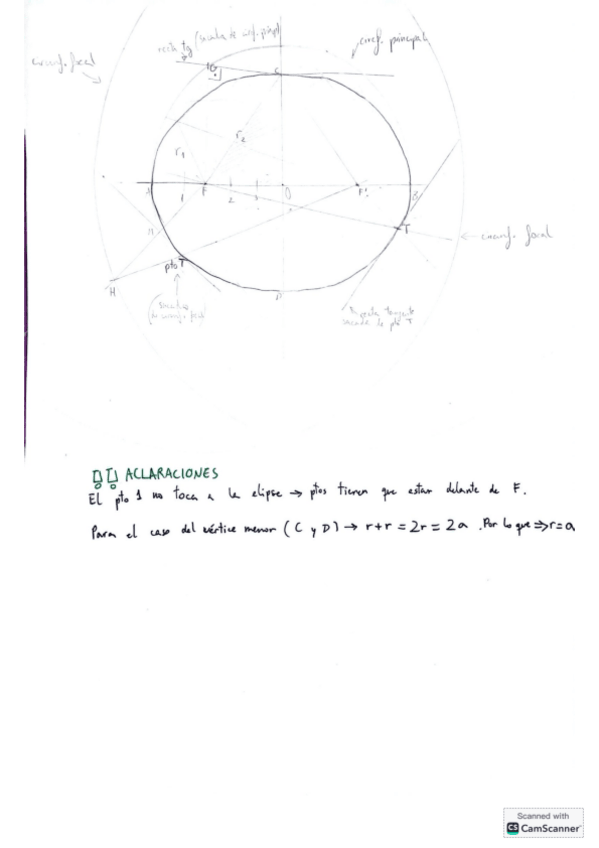 recta tg (secuela de circf. ppal)
circf. principal
circunf. focal
G
C
r2
r1
A
1
F
2
3
O
F'
B
T
circunf. focal
M
pto T
H
D
recta tangente
secuela de pto T
ACLARACIONES
El pto 1 no toca a la elipse → ptos tienen que estar delante de F.
Para el caso del vértice menor (C y D) → r+r = 2r = 2a. Por lo que ⇒ r=a
Scanned with
CS CamScanner